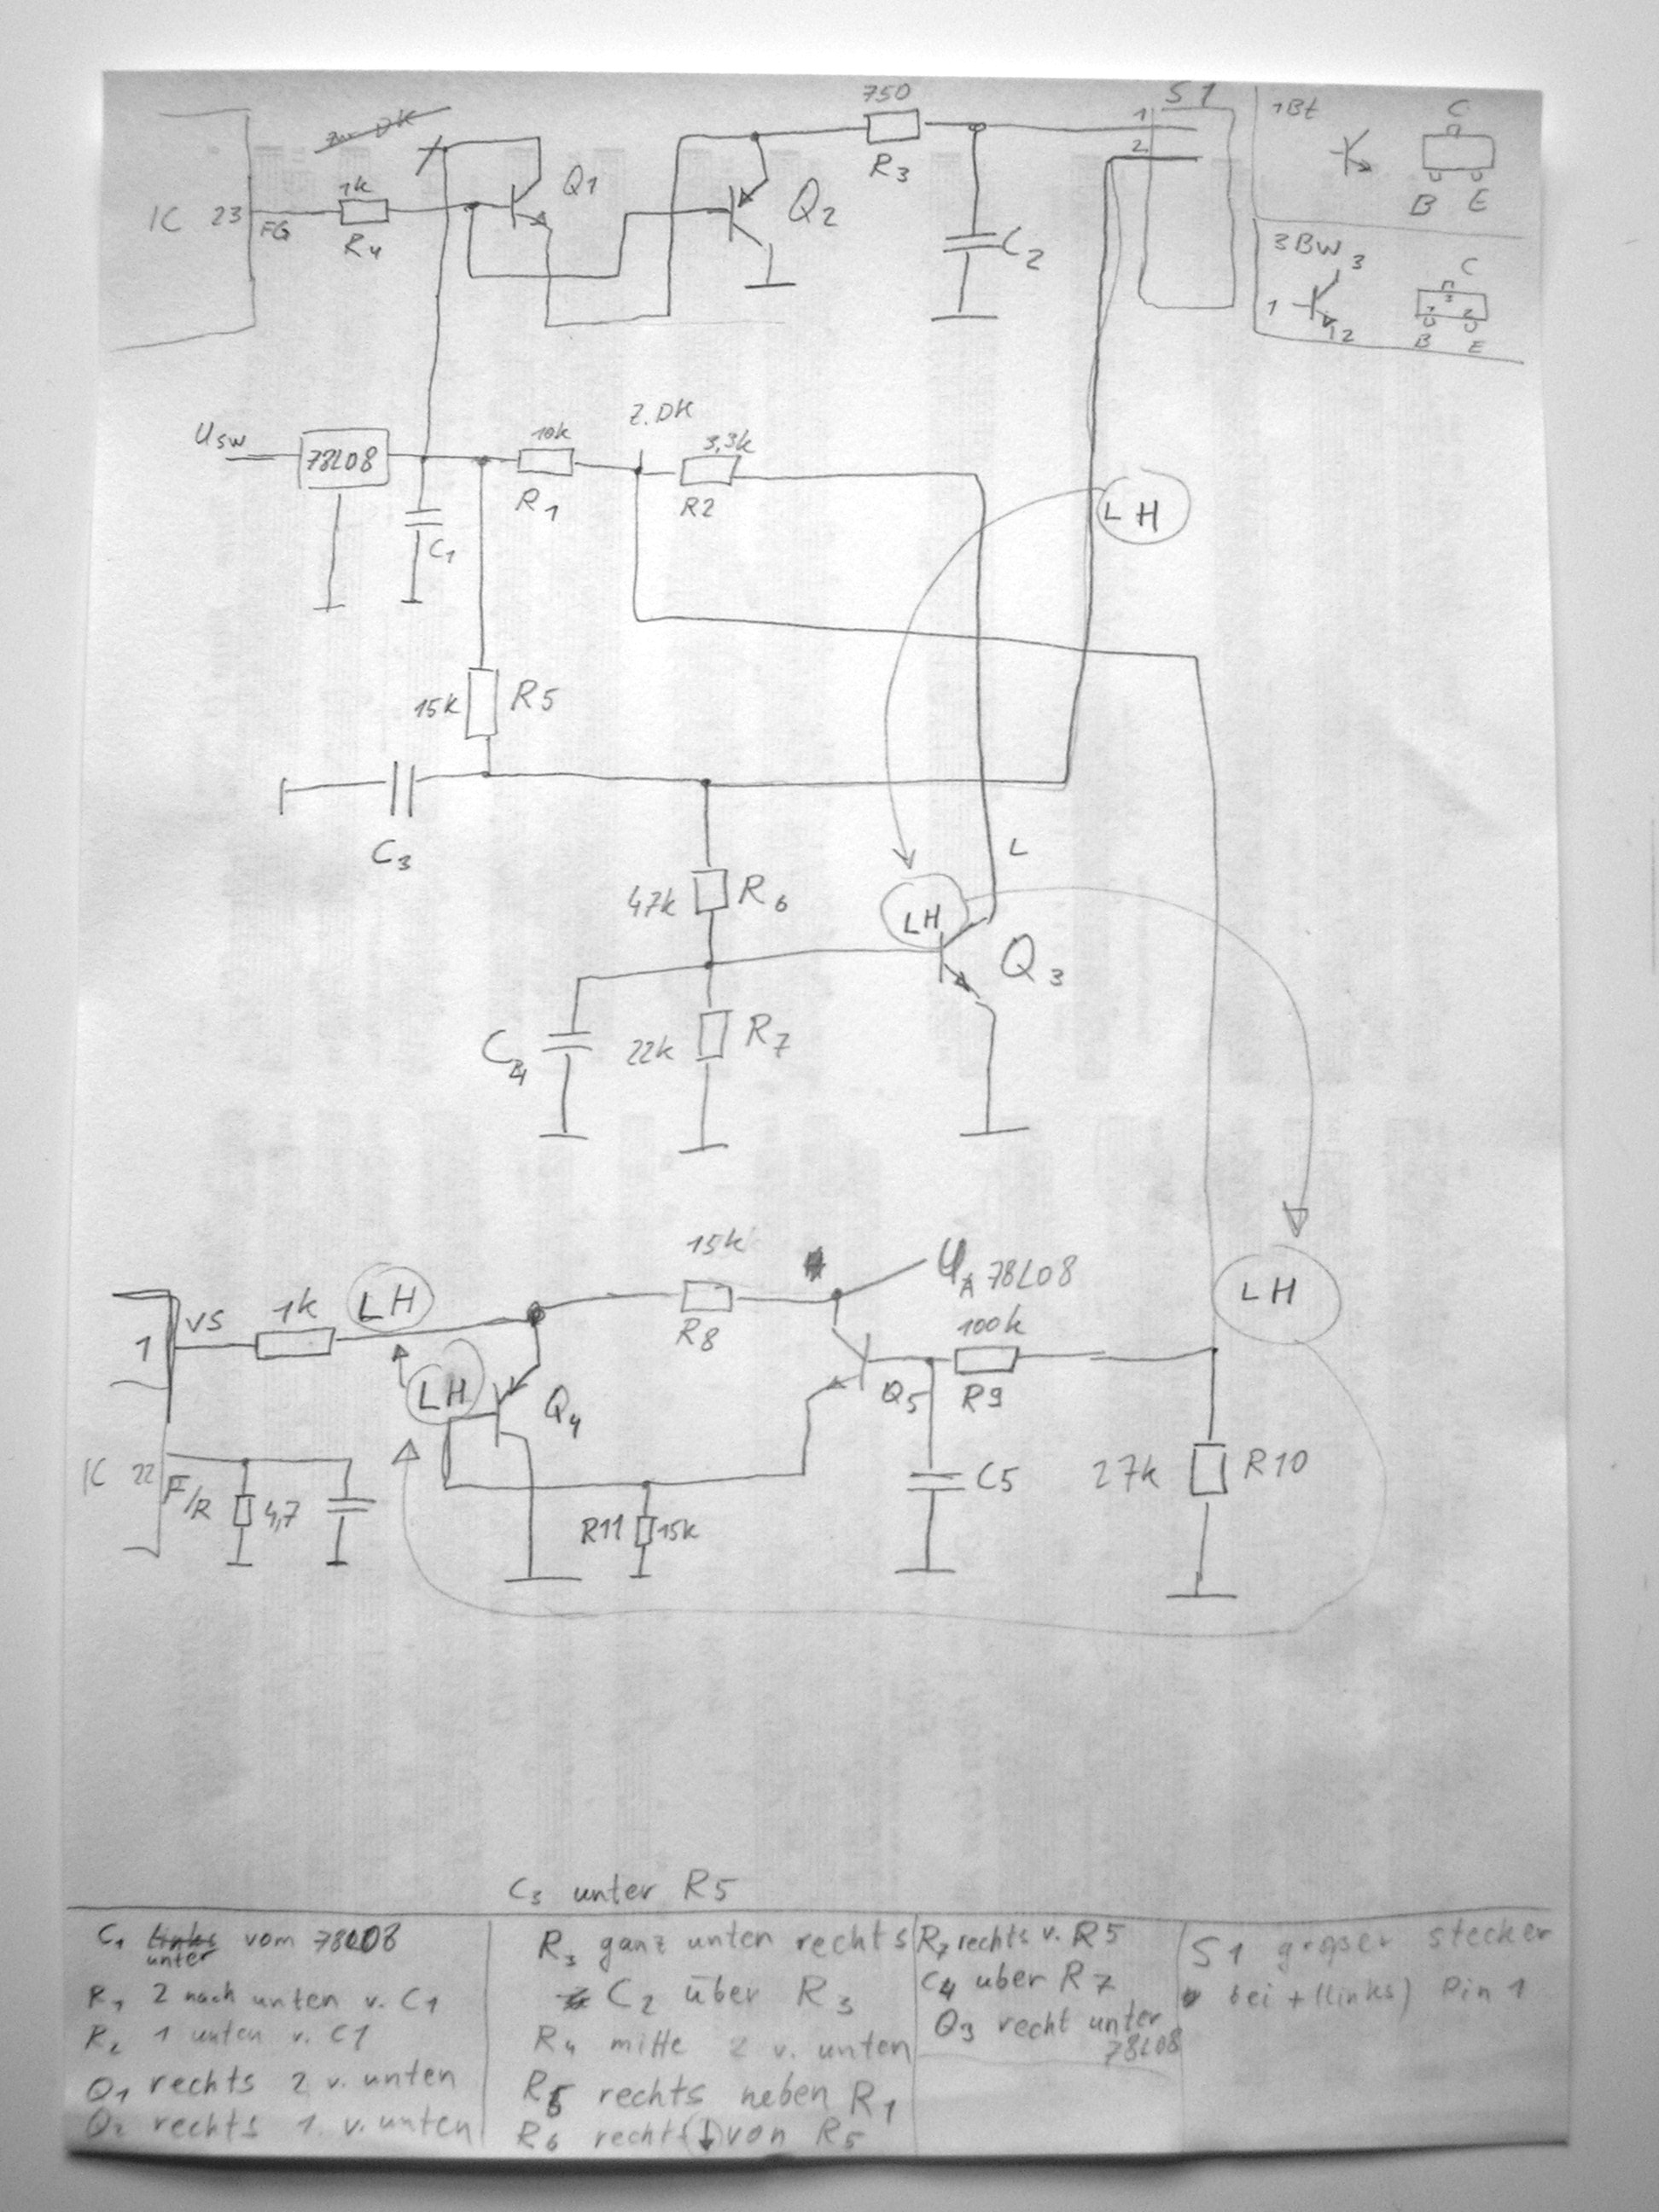 750
S1
1Bt
C
zur DK
1
2
1k
Q1
IC 23
FG
R4
Q2
R3
C2
B E
3BW
3
C
1
2
B E
Z.DK
Usw
78L08
10k
3,3k
R1
R2
C1
LH
15k
R5
C3
L
47k
R6
LH
Q3
C4
22k
R7
15k
UA 78L08
LH
1
VS
1k
LH
R8
100k
LH
Q4
Q5
R9
IC 22
F/R
4,7
C5
27k
R10
R11
15k
C3 unter R5
C1 links vom 78L08
unter
R1 2 nach unten v. C1
R2 1 unten v. C1
Q1 rechts 2 v. unten
Q2 rechts 1. v. unten
R3 ganz unten rechts
C2 über R3
R4 mitte 2 v. unten
R5 rechts neben R1
R6 recht(↓) von R5
R7 rechts v. R5
C4 uber R7
Q3 recht unter
78L08
S1 großer stecker
bei + (links) Pin 1